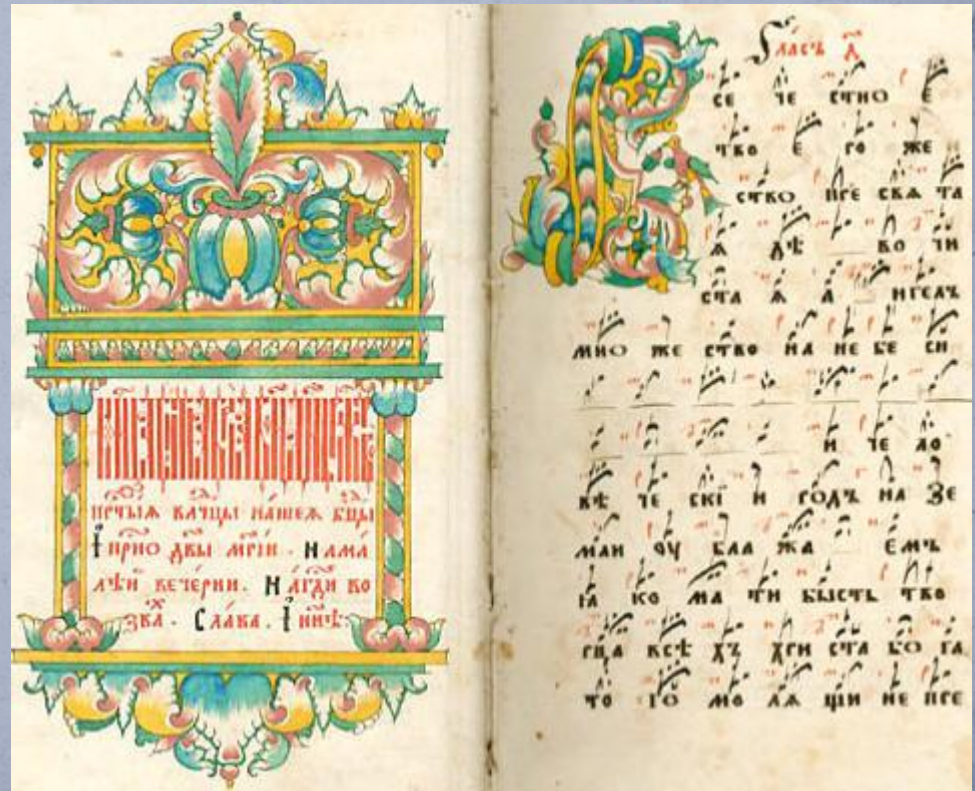 прⷭ҇чтыѧ влⷣчцы нашеѧ бцⷣы
І прно двы мріи. Нама
лѣй вечерни. Нагди во
зва. Слава. І ннѣ:
Гласъ д҃
се че стно е
тво е ро же
ство пре свѧ та
ѧ дѣ во чи
ста ѧ а нгелъ
мно же ство на не бе си
и че ло
вѣ че скі и родъ на зе
мли оу бла жа емъ
ꙗ ко ма ти бысть тво
рца всѣ хъ хри ста бо га
то го мо лѧ щи не пре